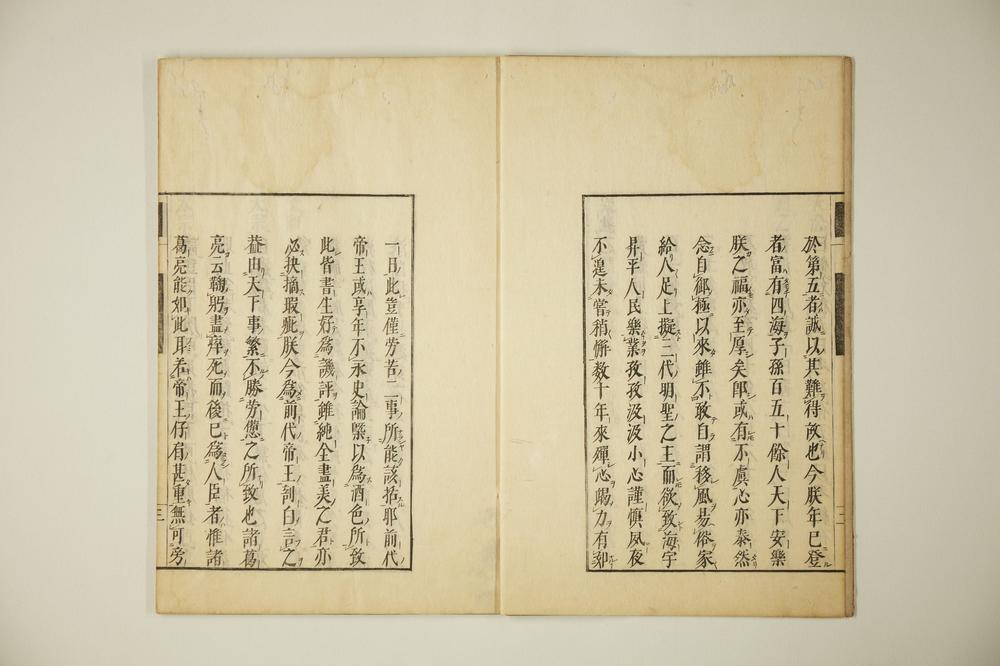 於第五者誠以其難得故也今朕年已登
者富有四海子孫百五十餘人天下安樂
朕之福亦至厚矣卽或有不虞心亦泰然
念自御極以來雖不敢自謂移風易俗家
給人足上擬三代明聖之主而欲致海宇
昇平人民樂業孜孜汲汲小心謹愼夙夜
不遑未嘗稍懈數十年來殫心竭力有如
一日此豈僅勞苦二事所能該括耶前代
帝王或享年不永史論槩以爲酒色所致
此皆書生好爲譏評雖純全盡美之君亦
必抉摘瑕疵朕今爲前代帝王剖白言之
葢由天下事繁不勝勞憊之所致也諸葛
亮云鞠躬盡瘁死而後已爲人臣者惟諸
葛亮能如此耳若帝王仔肩甚重無可旁
二
三